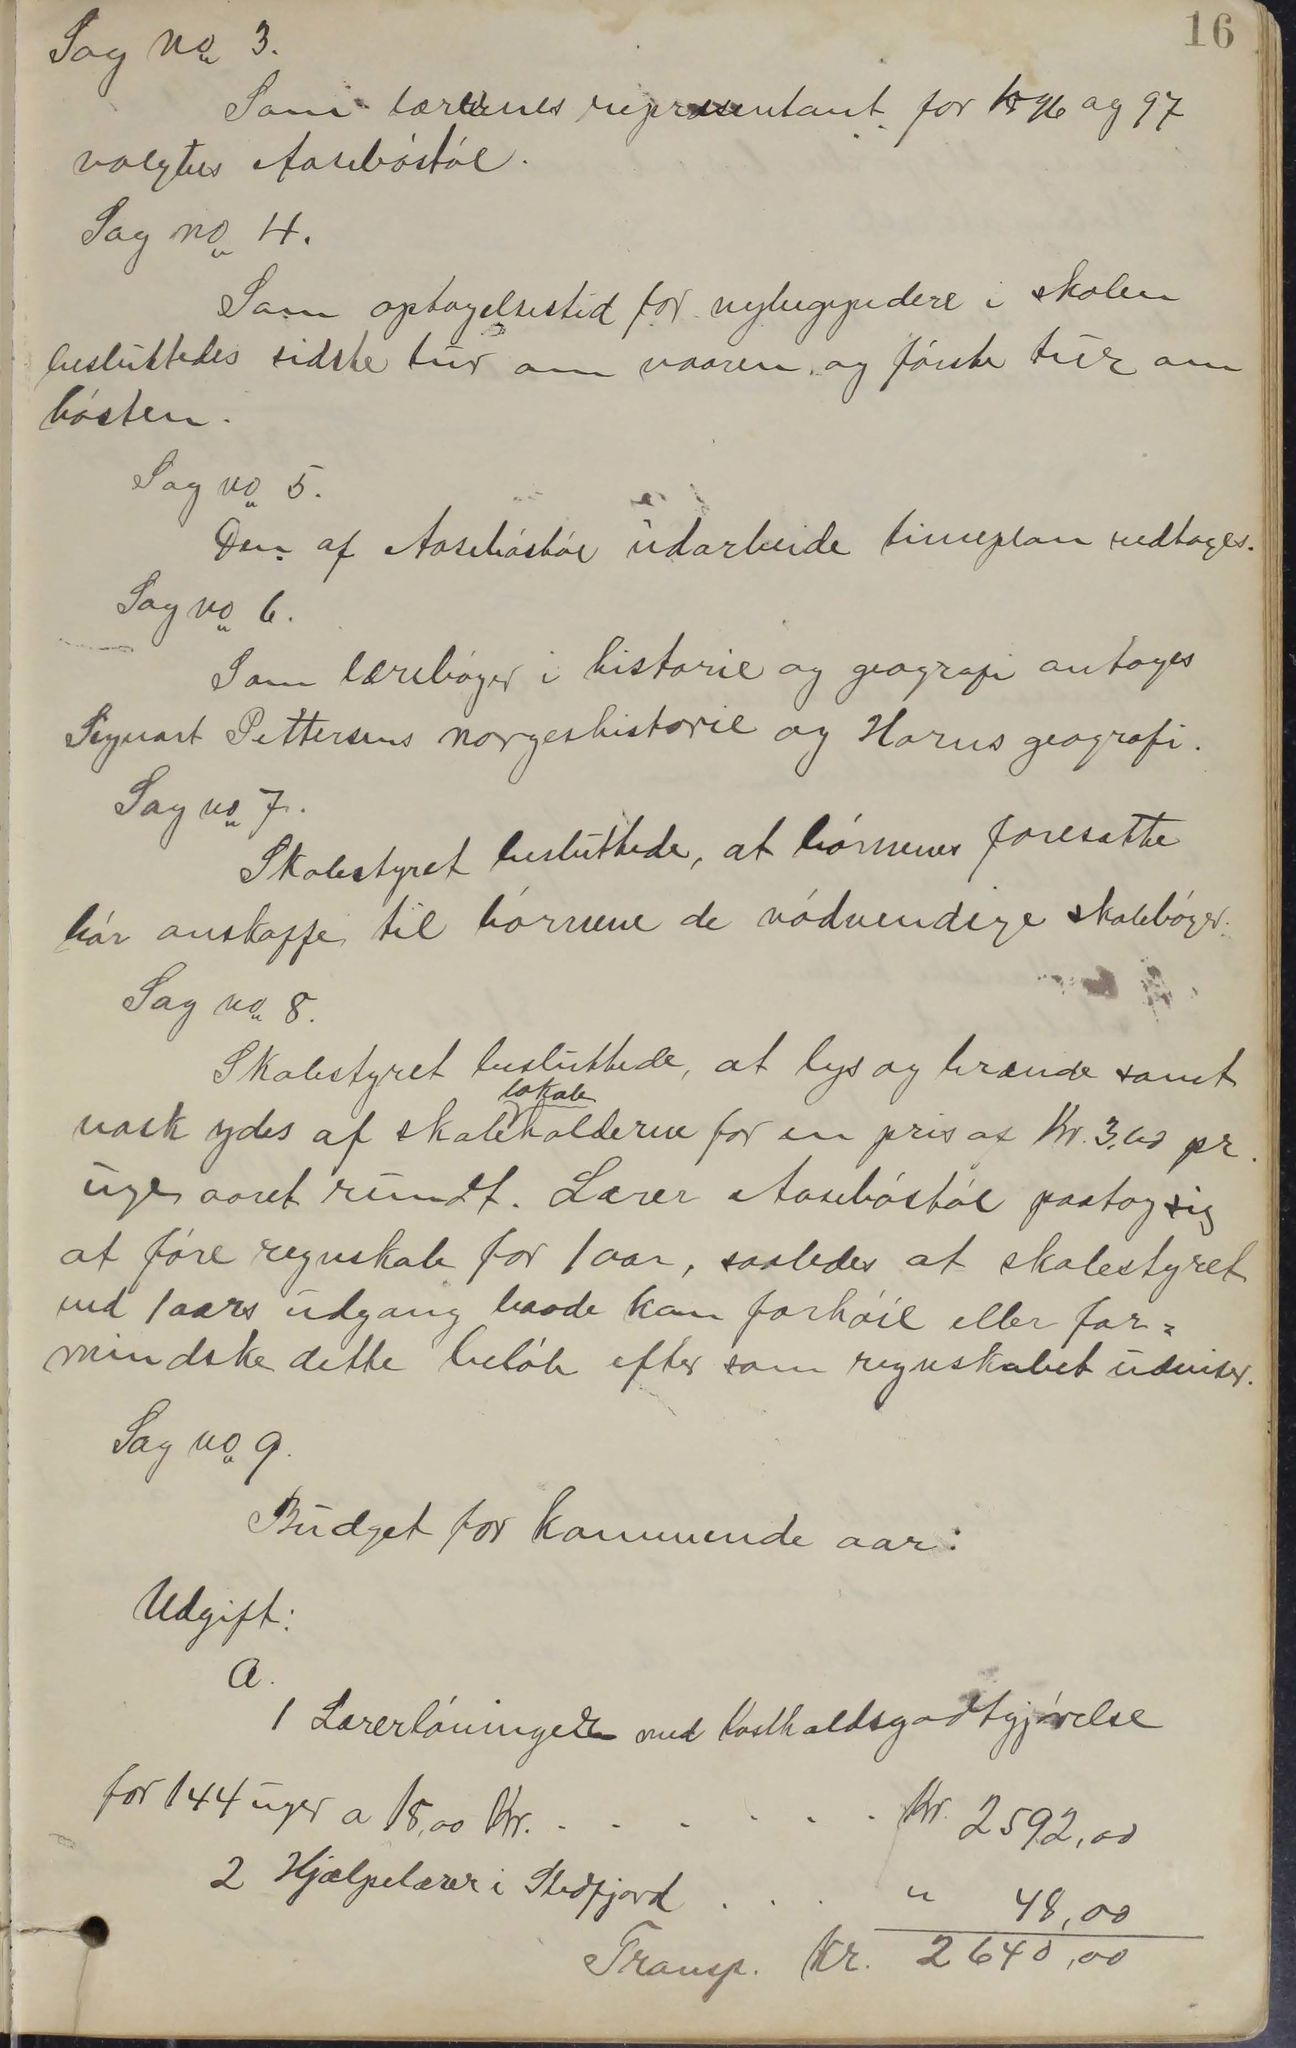 16
Sag no 3.
Som lærernes representant for 96 og 97
valgtes Aasebøstøl.
Sag no 4.
Som optagelsestid for nybegyndere i skolen
besluttedes sidste tur om vaaren og første tur om
høsten.
Sag no 5.
Den af Aasebøstøl udarbeide timeplan vedtoges.
Sag no 6.
Som lærebøger i historie og geografi antoges
Siguart Pettersens norgeshistorie og Horns geografi.
Sag no 7.
Skolestyret besluttede, at børnenes foresatte
bør anskaffe til børnene de nødvendige skolebøger.
Sag no 8.
Skolestyret besluttede, at lys og brænde samt
lokale
vask ydes af skoleholderne for en pris af Kr. 3,00 pr.
uge aaret rundt. Lærer Aasebøstøl paatog sig
at føre regnskab for 1 aar, saaledes at skolestyret
ved 1 aars udgang baade kan forhøie eller for=
mindske dette beløb efter som regnskabet udviser.
Sag no 9.
Budget for kommende aar:
Udgift:
a.
1 Lærerløninger med kostholdsgodtgjørelse
for 144 uger a 18,00 Kr. . . . . . . Kr. 2592,00
2 Hjælpelærer i Skedfjord . . . " 48,00
Transp. Kr. 2640,00